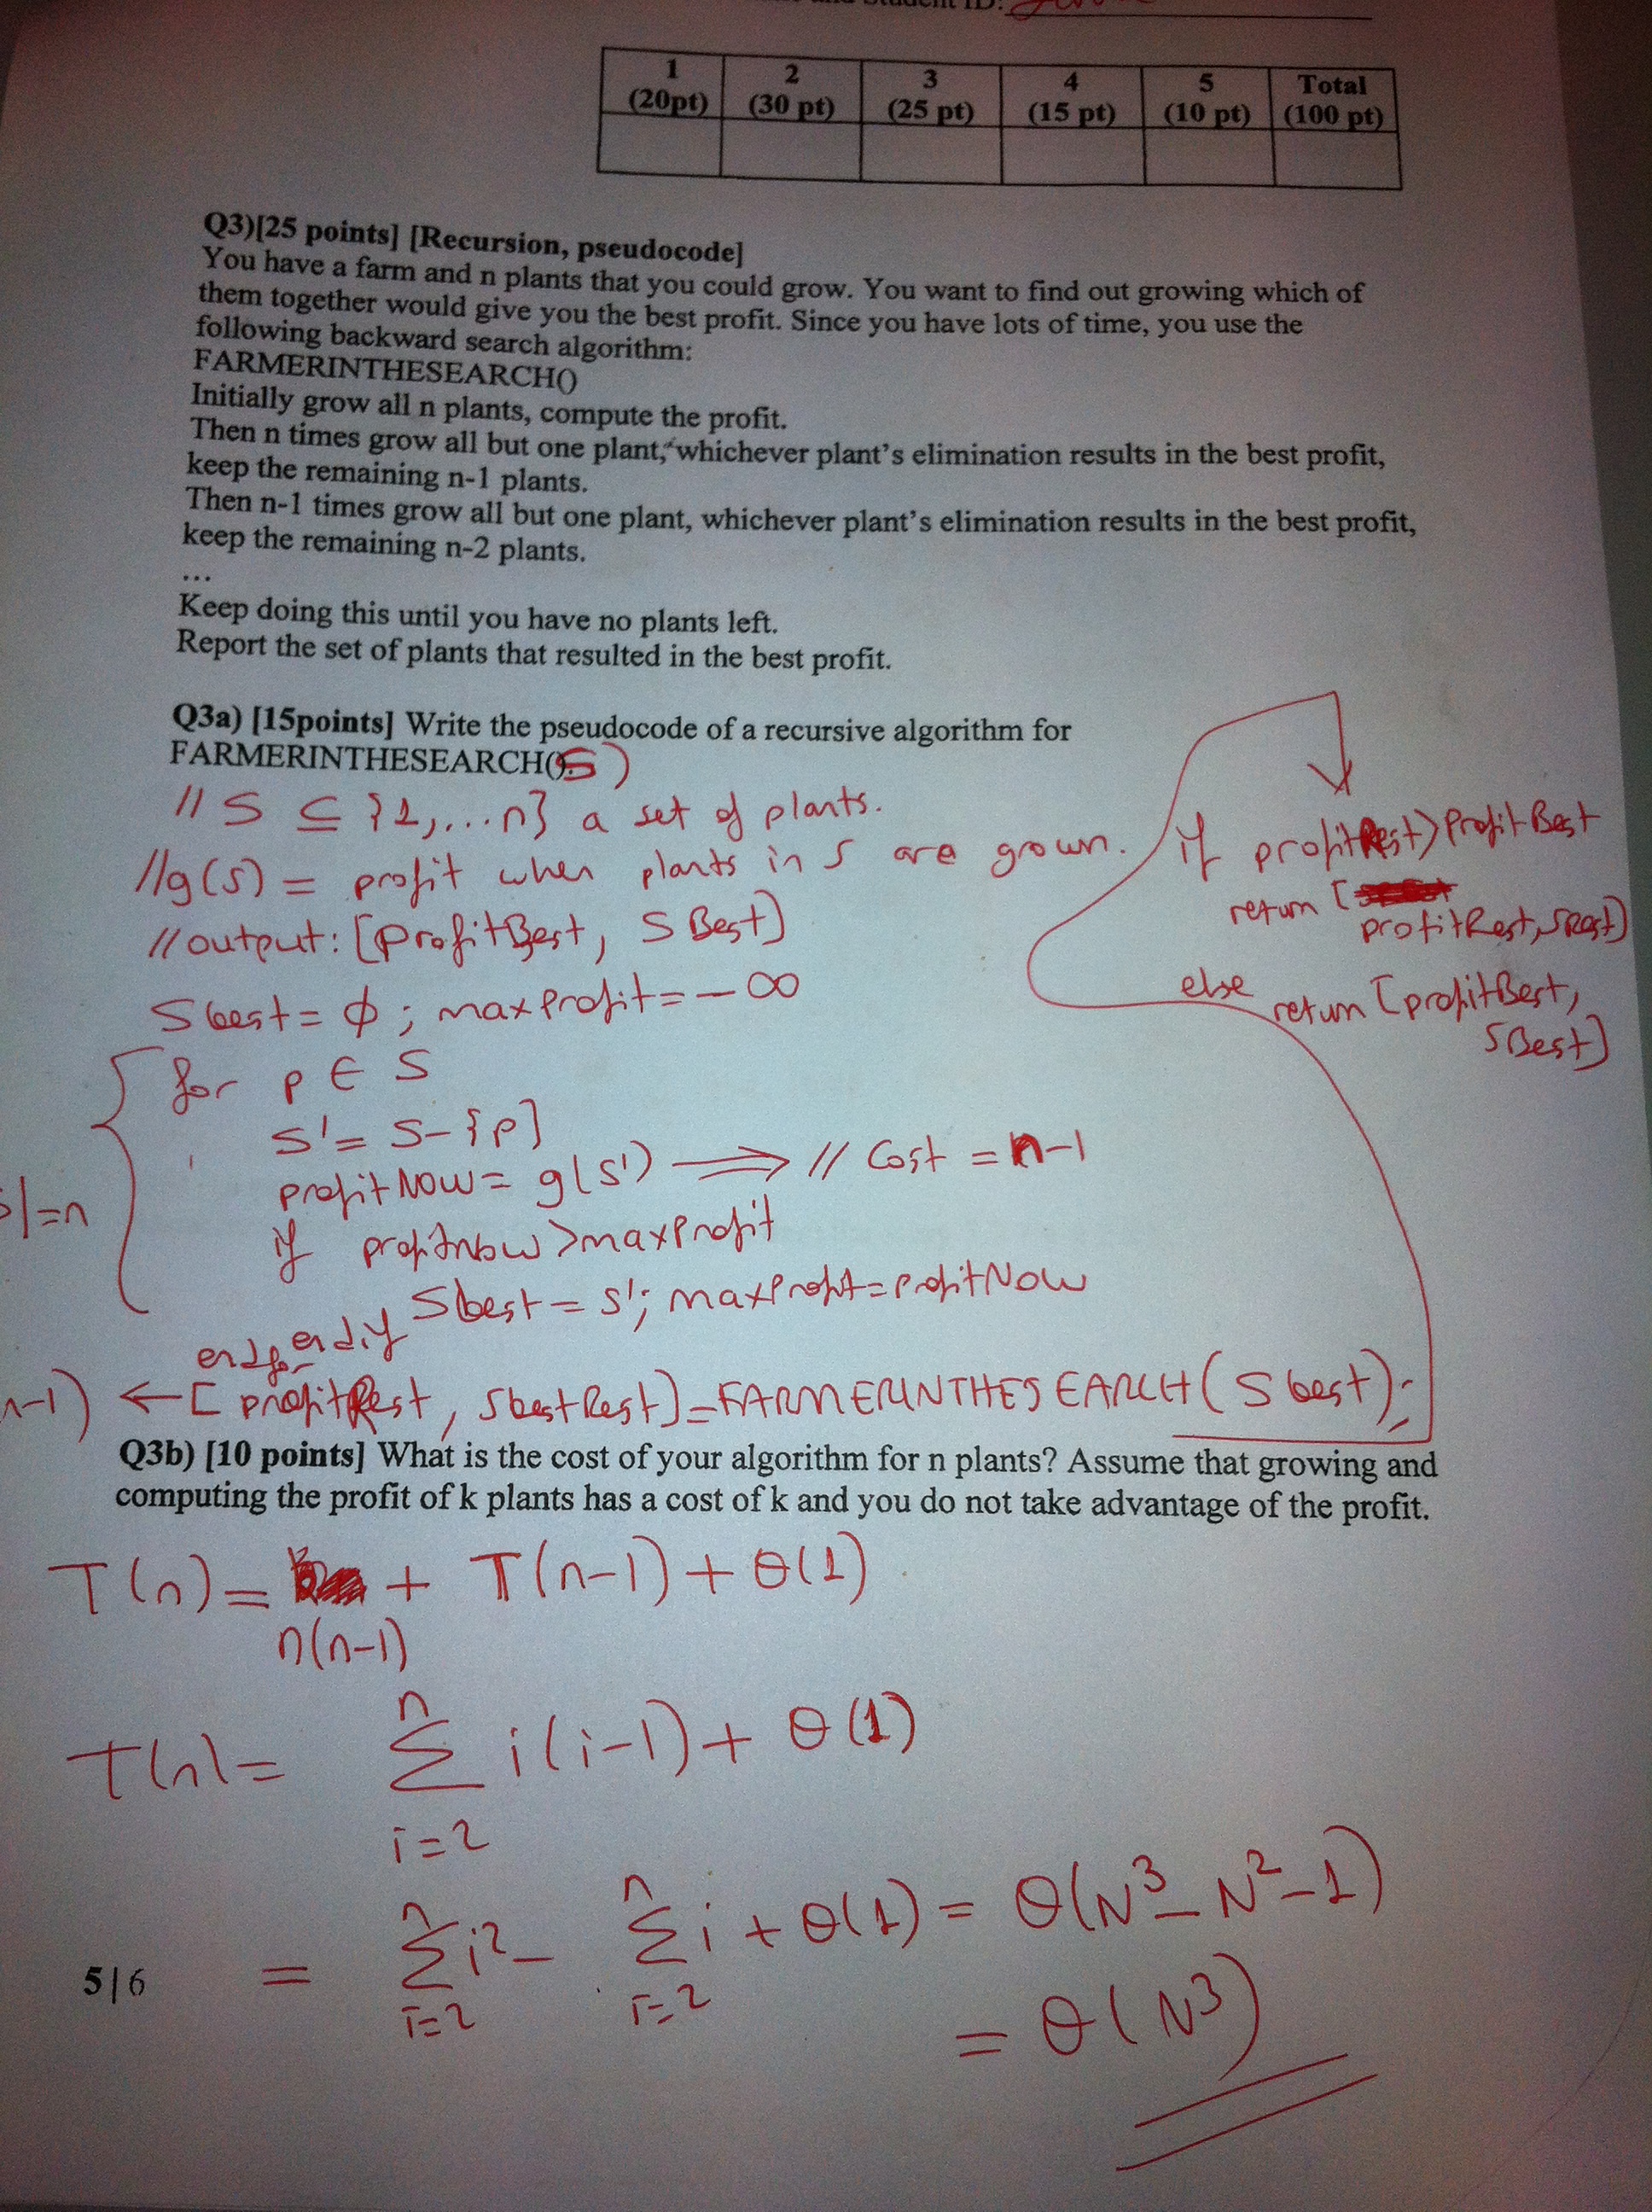 Student ID:
1 2 3 4 5 Total
(20pt) (30 pt) (25 pt) (15 pt) (10 pt) (100 pt)
Q3)[25 points] [Recursion, pseudocode]
You have a farm and n plants that you could grow. You want to find out growing which of
them together would give you the best profit. Since you have lots of time, you use the
following backward search algorithm:
FARMERINTHESEARCH()
Initially grow all n plants, compute the profit.
Then n times grow all but one plant, whichever plant's elimination results in the best profit,
keep the remaining n-1 plants.
Then n-1 times grow all but one plant, whichever plant's elimination results in the best profit,
keep the remaining n-2 plants.
...
Keep doing this until you have no plants left.
Report the set of plants that resulted in the best profit.
Q3a) [15points] Write the pseudocode of a recursive algorithm for
FARMERINTHESEARCH(). S)
// S ⊆ {1,...n} a set of plants.
//g(S) = profit when plants in S are grown.
//output: [ProfitBest, SBest]
Sbest = ϕ ; maxProfit = -∞
for p ∈ S
S' = S-{p}
profitNow = g(S') ⟹ // Cost = n-1
if profitNow > maxProfit
Sbest = S'; maxProfit = profitNow
endif
endfor
|=n
n-1) ← [profitRest, SbestRest] = FARMERINTHESEARCH(Sbest);
if profitRest > ProfitBest
return [
profitRest, SRest]
else return [profitBest,
SBest]
Q3b) [10 points] What is the cost of your algorithm for n plants? Assume that growing and
computing the profit of k plants has a cost of k and you do not take advantage of the profit.
T(n) = + T(n-1) + θ(1)
n(n-1)
n
T(n) = Σ i(i-1) + θ(1)
i=2
n n
= Σ i² - Σ i + θ(1) = θ(N³ - N² - 1)
i=2 i=2
= θ(N³)
5|6